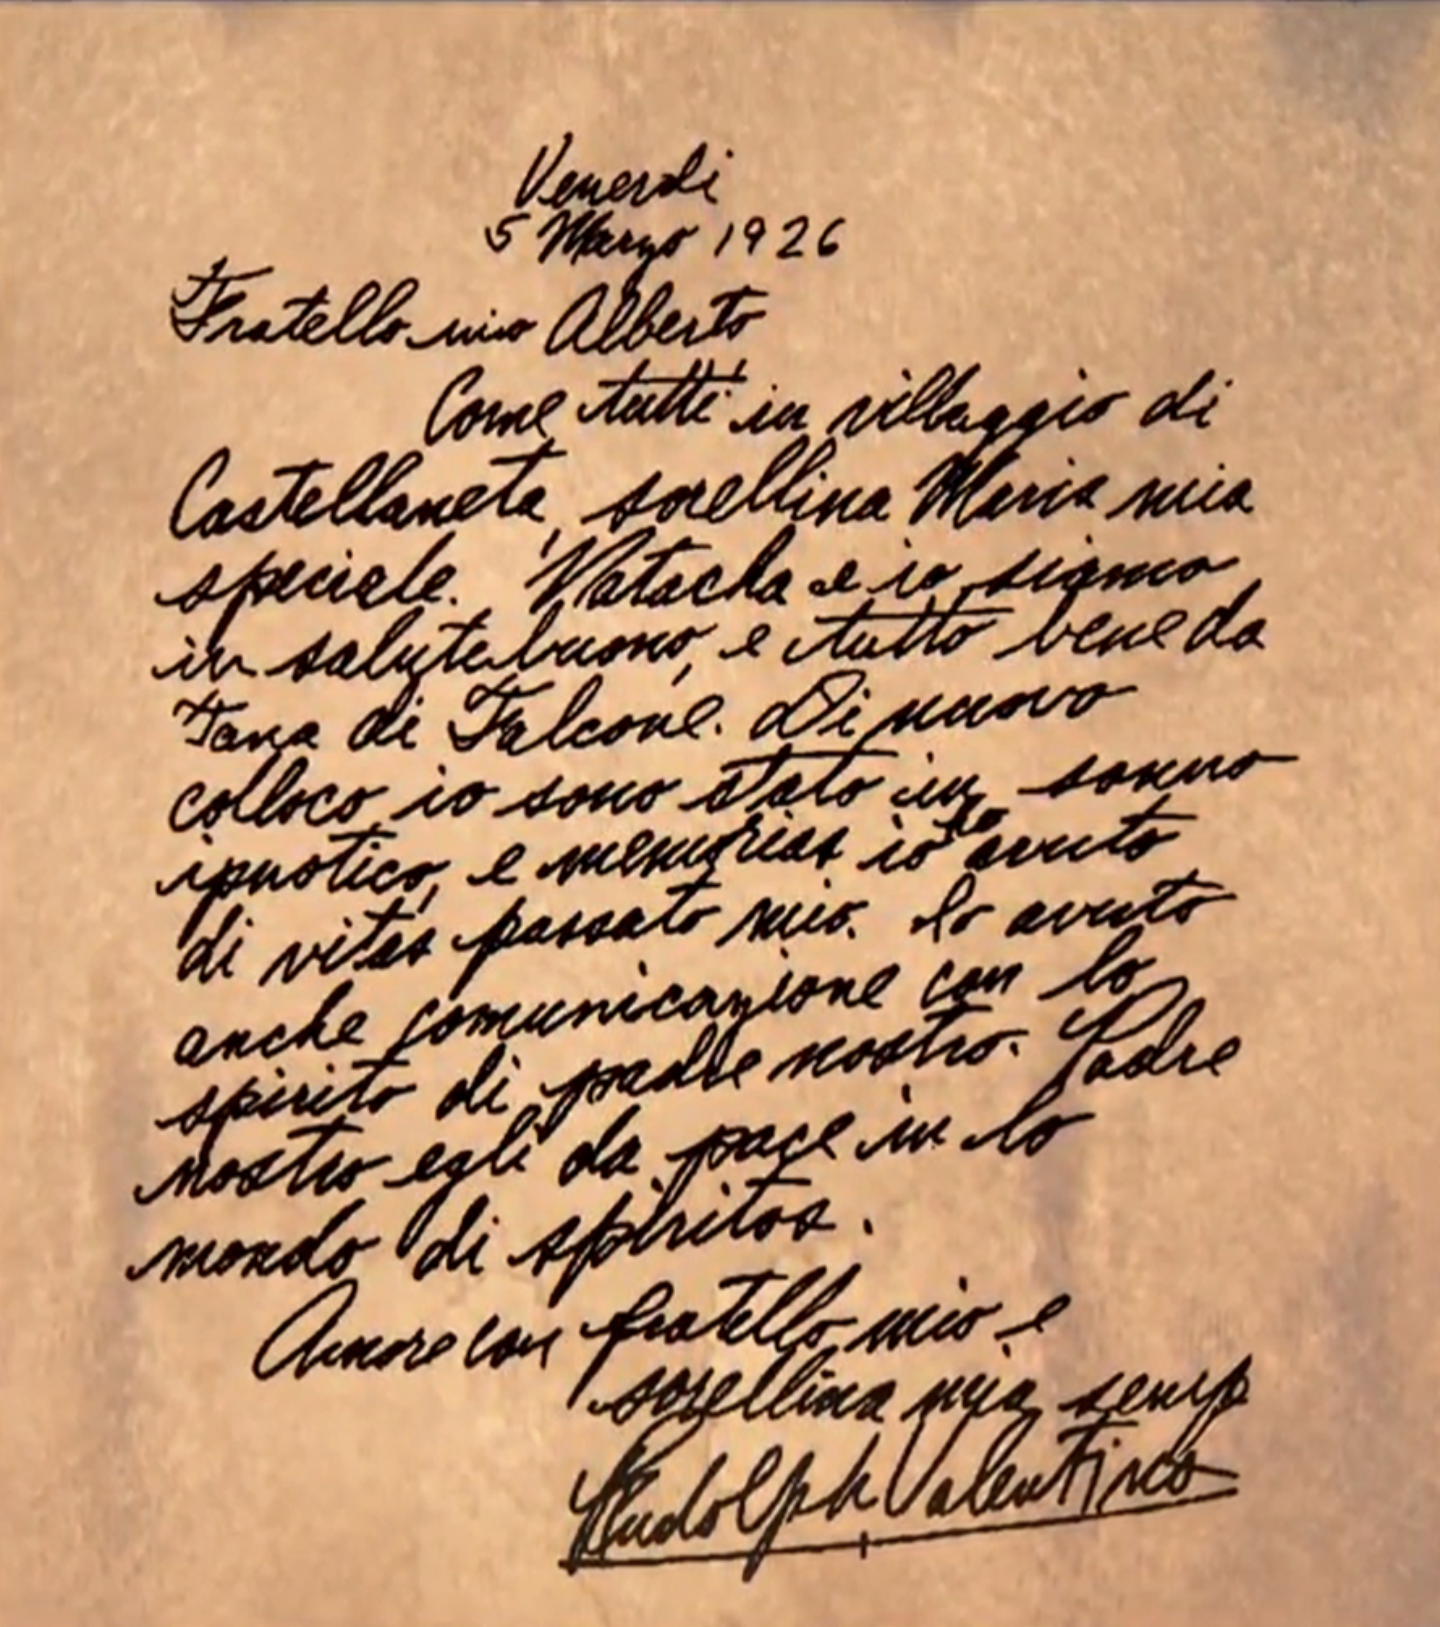 Venerdi
5 Marzo 1926
Fratello mio Alberto
Come tutti in villaggio di
Castellaneta, sorellina Maria mia
speciale. Natacha e io siamo
in salute buono, e tutto bene da
Tana di Falcone. Di nuovo
colloco io sono stato in sonno
ipnotico, e memorias io lo avuto
di vitas passato mio. Io avuto
anche comunicazione con lo
spirito di padre nostro. Padre
nostro egli da pace in lo
mondo di spiritos.
Amore con fratello mio e
sorellina mia semp
Rudolph Valentino